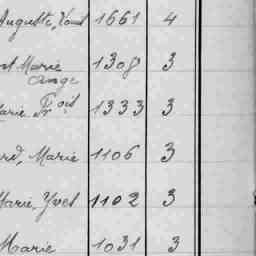 Auguste, Vont 1661 4
Marie ange 1308 3
Marie Frçois 1333 3
Marie 1106 3
Marie, Yves 1102 3
Marie 1031 3